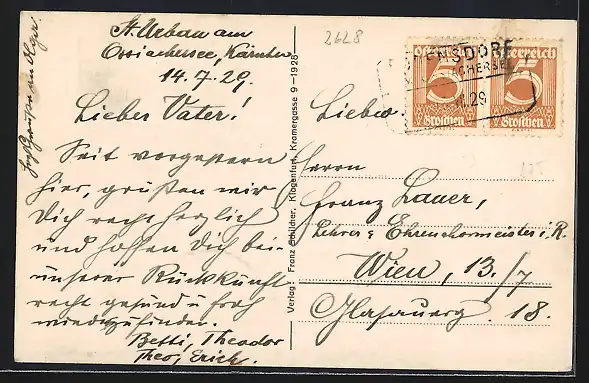 St. Urban am
Ossiachersee, Kärnten
14.7.29.
Lieber Vater!
Seit vorgestern
hier, grüßen wir
Dich recht herzlich
und hoffen Dich bei
unserer Rückkunft
recht gesund u froh
wiederzufinden.
Betti, Theodor
Theo, Erich.
2628
Österreich
5
Groschen
Österreich
5
Groschen
ENSDORF
29
Verlag: Franz Schilcher, Klagenfurt, Kramergasse 9 – 1928
Lieben
Herrn
Franz Lauer,
Lehrer u. Ehrenchormeister i. R.
Wien, 13./7
18.